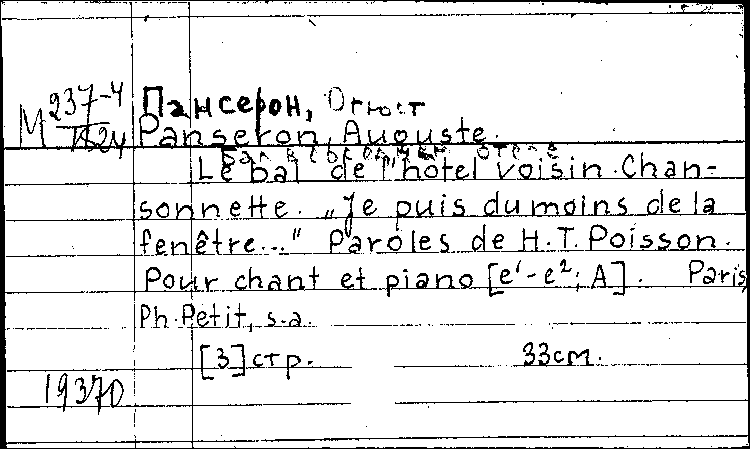 М 237-4 Пансерон, Огюст
Panseron, Auguste.
Бал в соседнем отеле
Le bal de l'hôtel voisin. Chan-
sonnette. „Je puis du moins de la
fenêtre..." Paroles de H. T. Poisson.
Pour chant et piano [e¹-e²; A]. Paris,
Ph. Petit, s.a.
[3] стр. 33 см.
19370